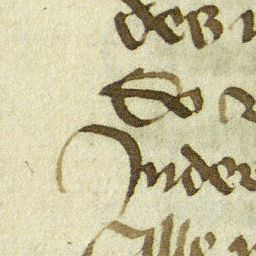 des
So
Inder
Alle